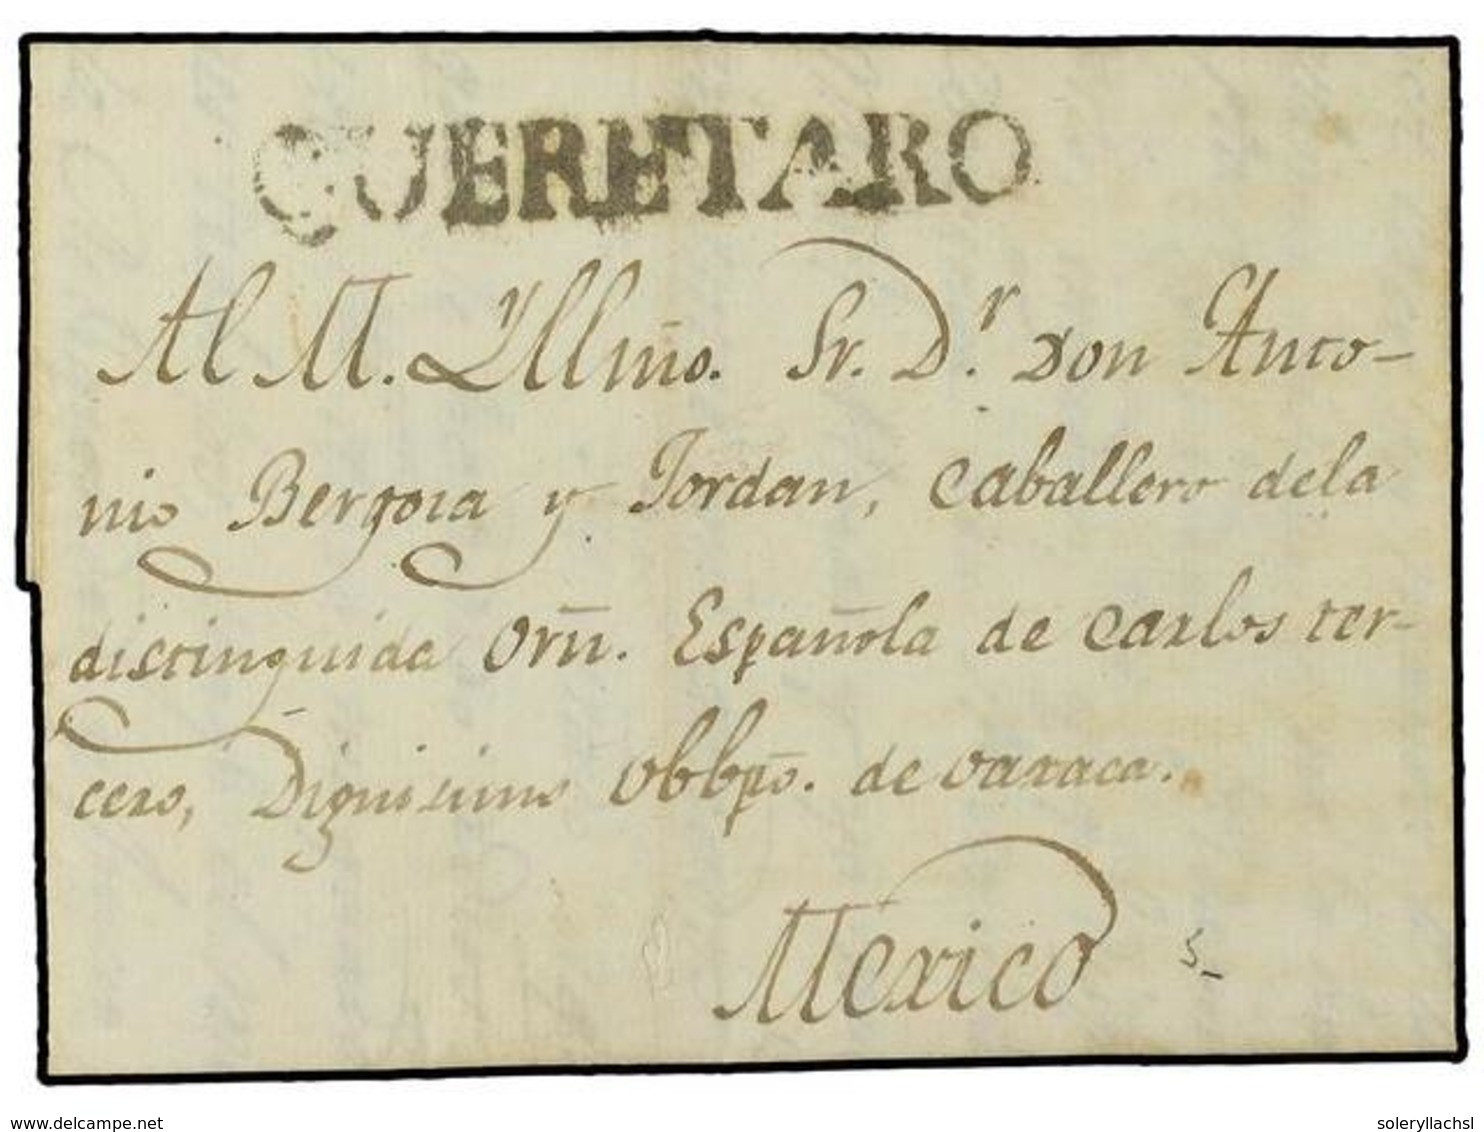 QUERETARO
Al M. Yllm̃o. Sr. D.r Don Anto-
nio Bergosa y Jordan, Caballero dela
distinguida Orñ. Española de Carlos ter-
cero, Dignisimo Obbpo. de Oaxaca.
Mexico
delcampe.net
soleryllachsl